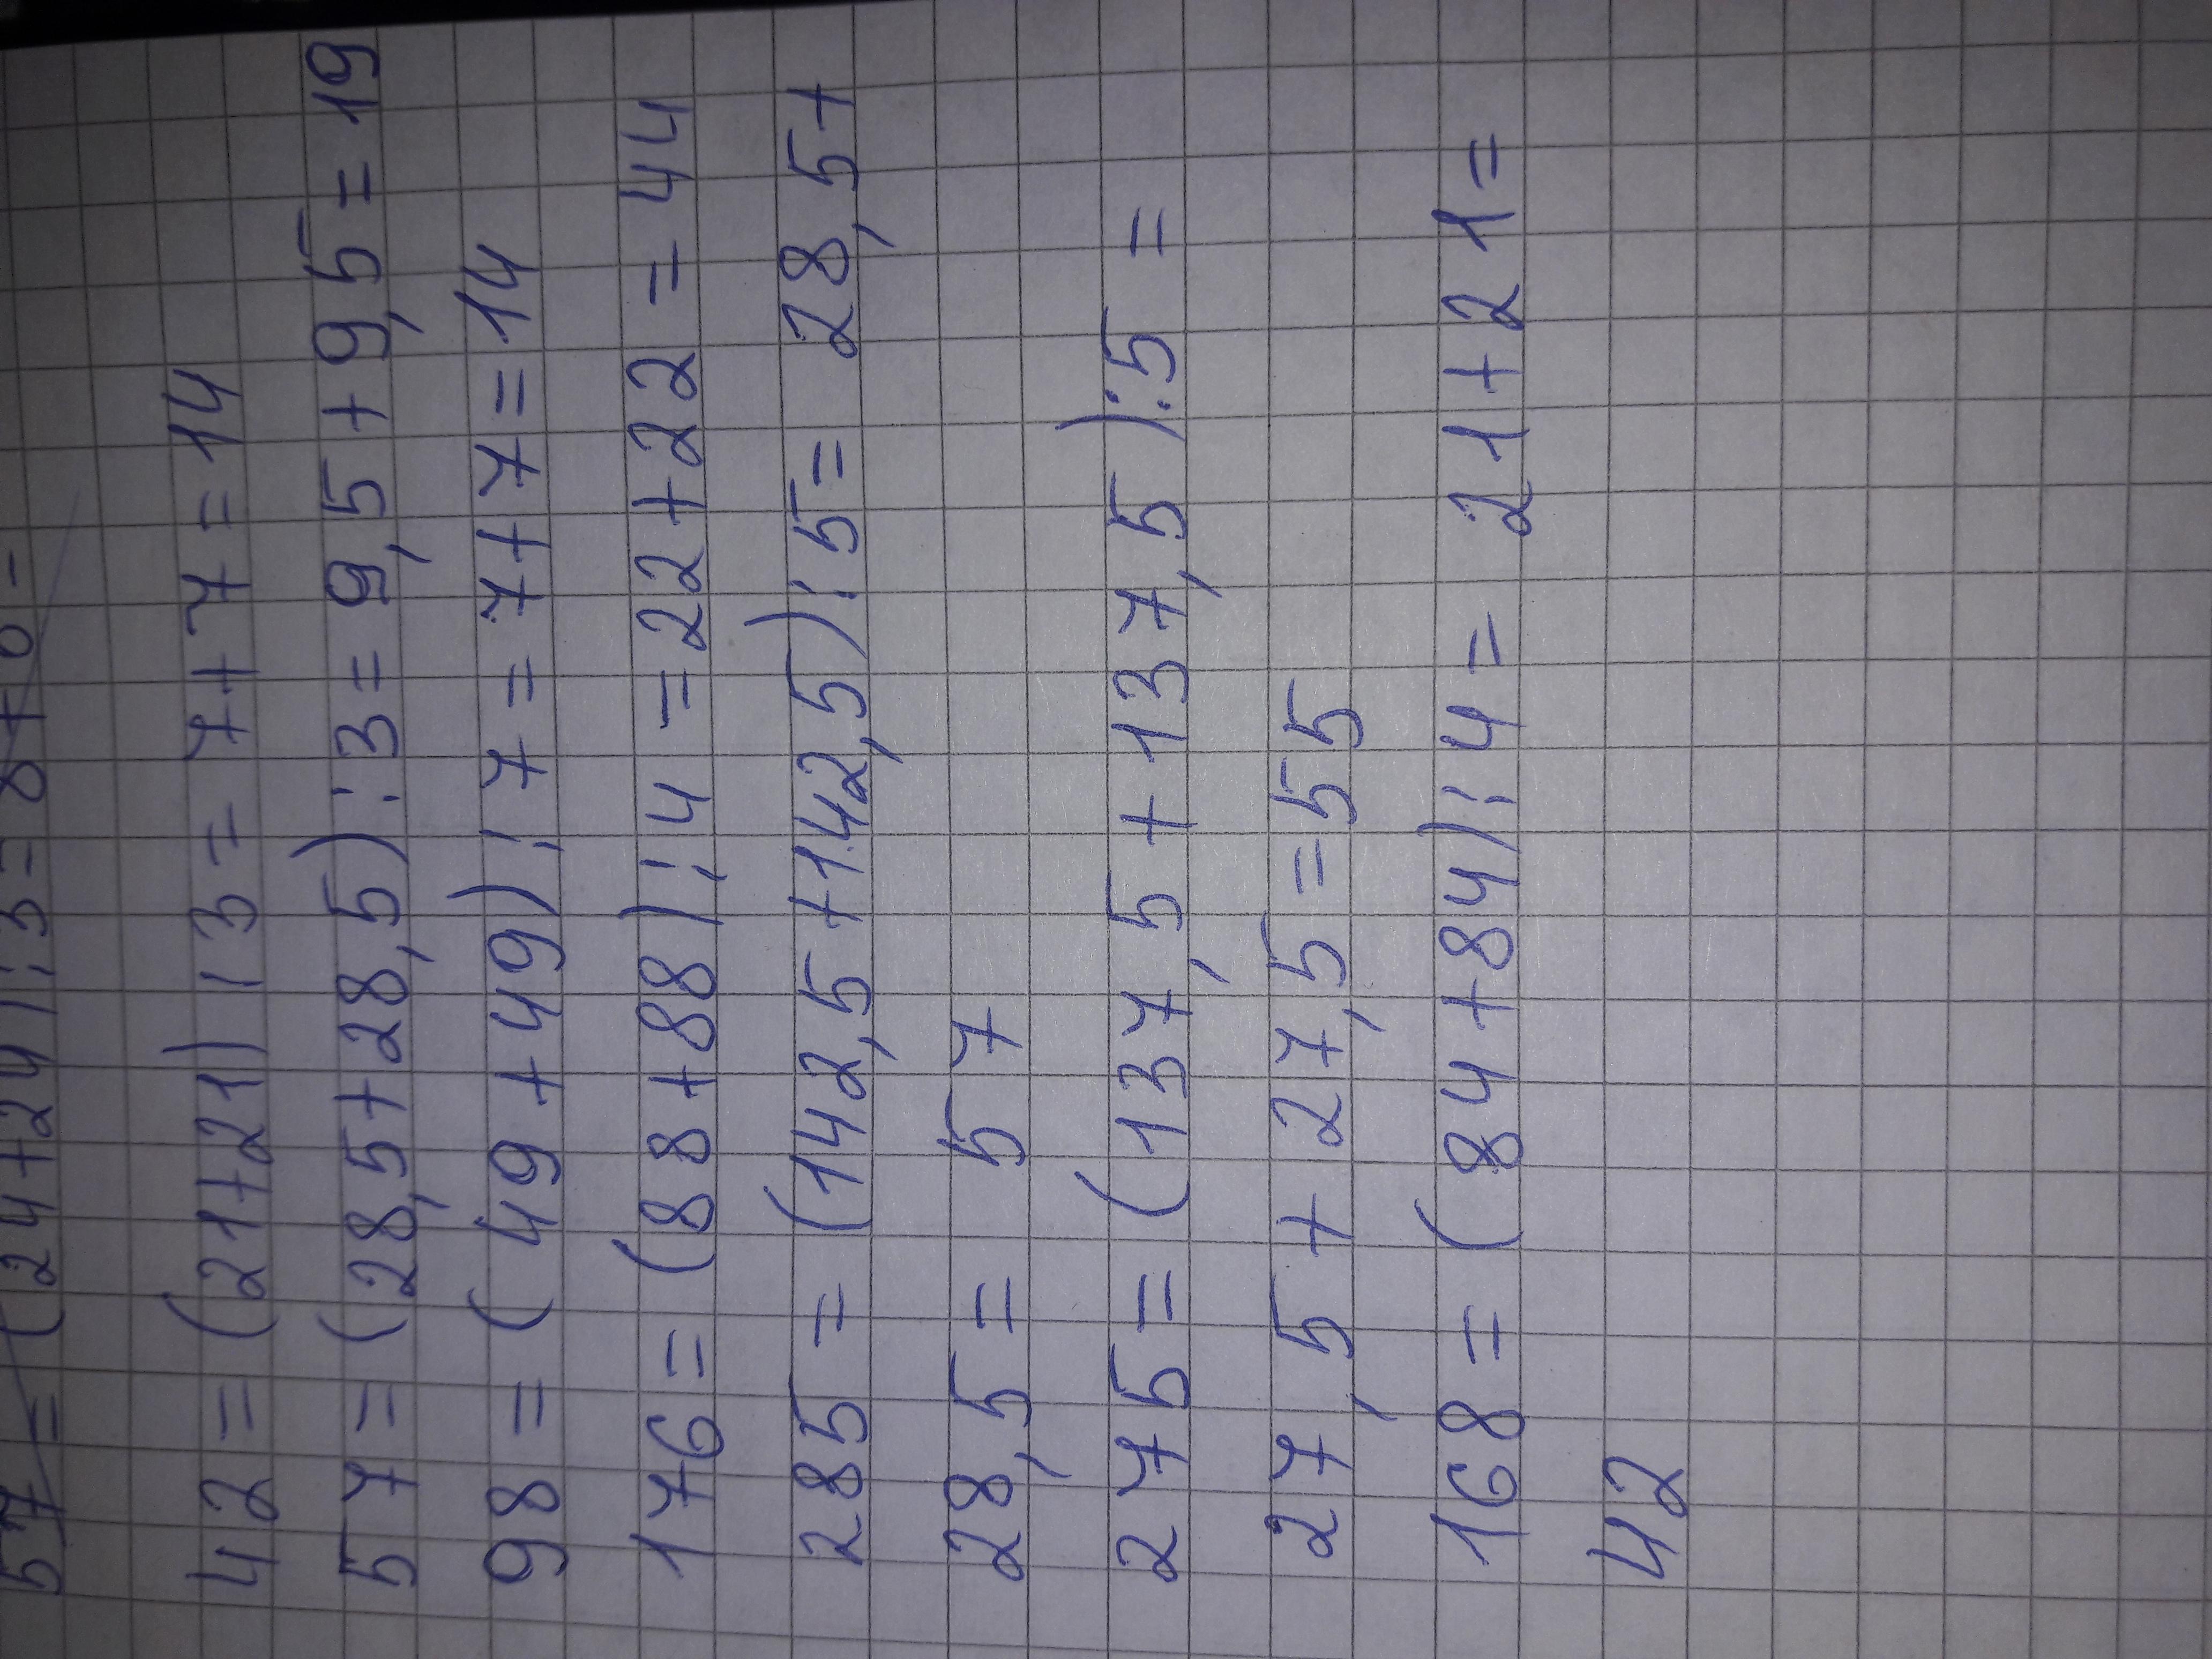 57 = (24+24):3=8+8=
42 = (21+21):3 = 7+7=14
57= (28,5+28,5):3=9,5+9,5=19
98 = (49+49):7=7+7=14
176= (88+88):4 =22+22=44
285 = (142,5+142,5):5= 28,5+
28,5= 57
275= (137,5+137,5):5 =
27,5+27,5=55
168 = (84+84):4= 21+21=
42